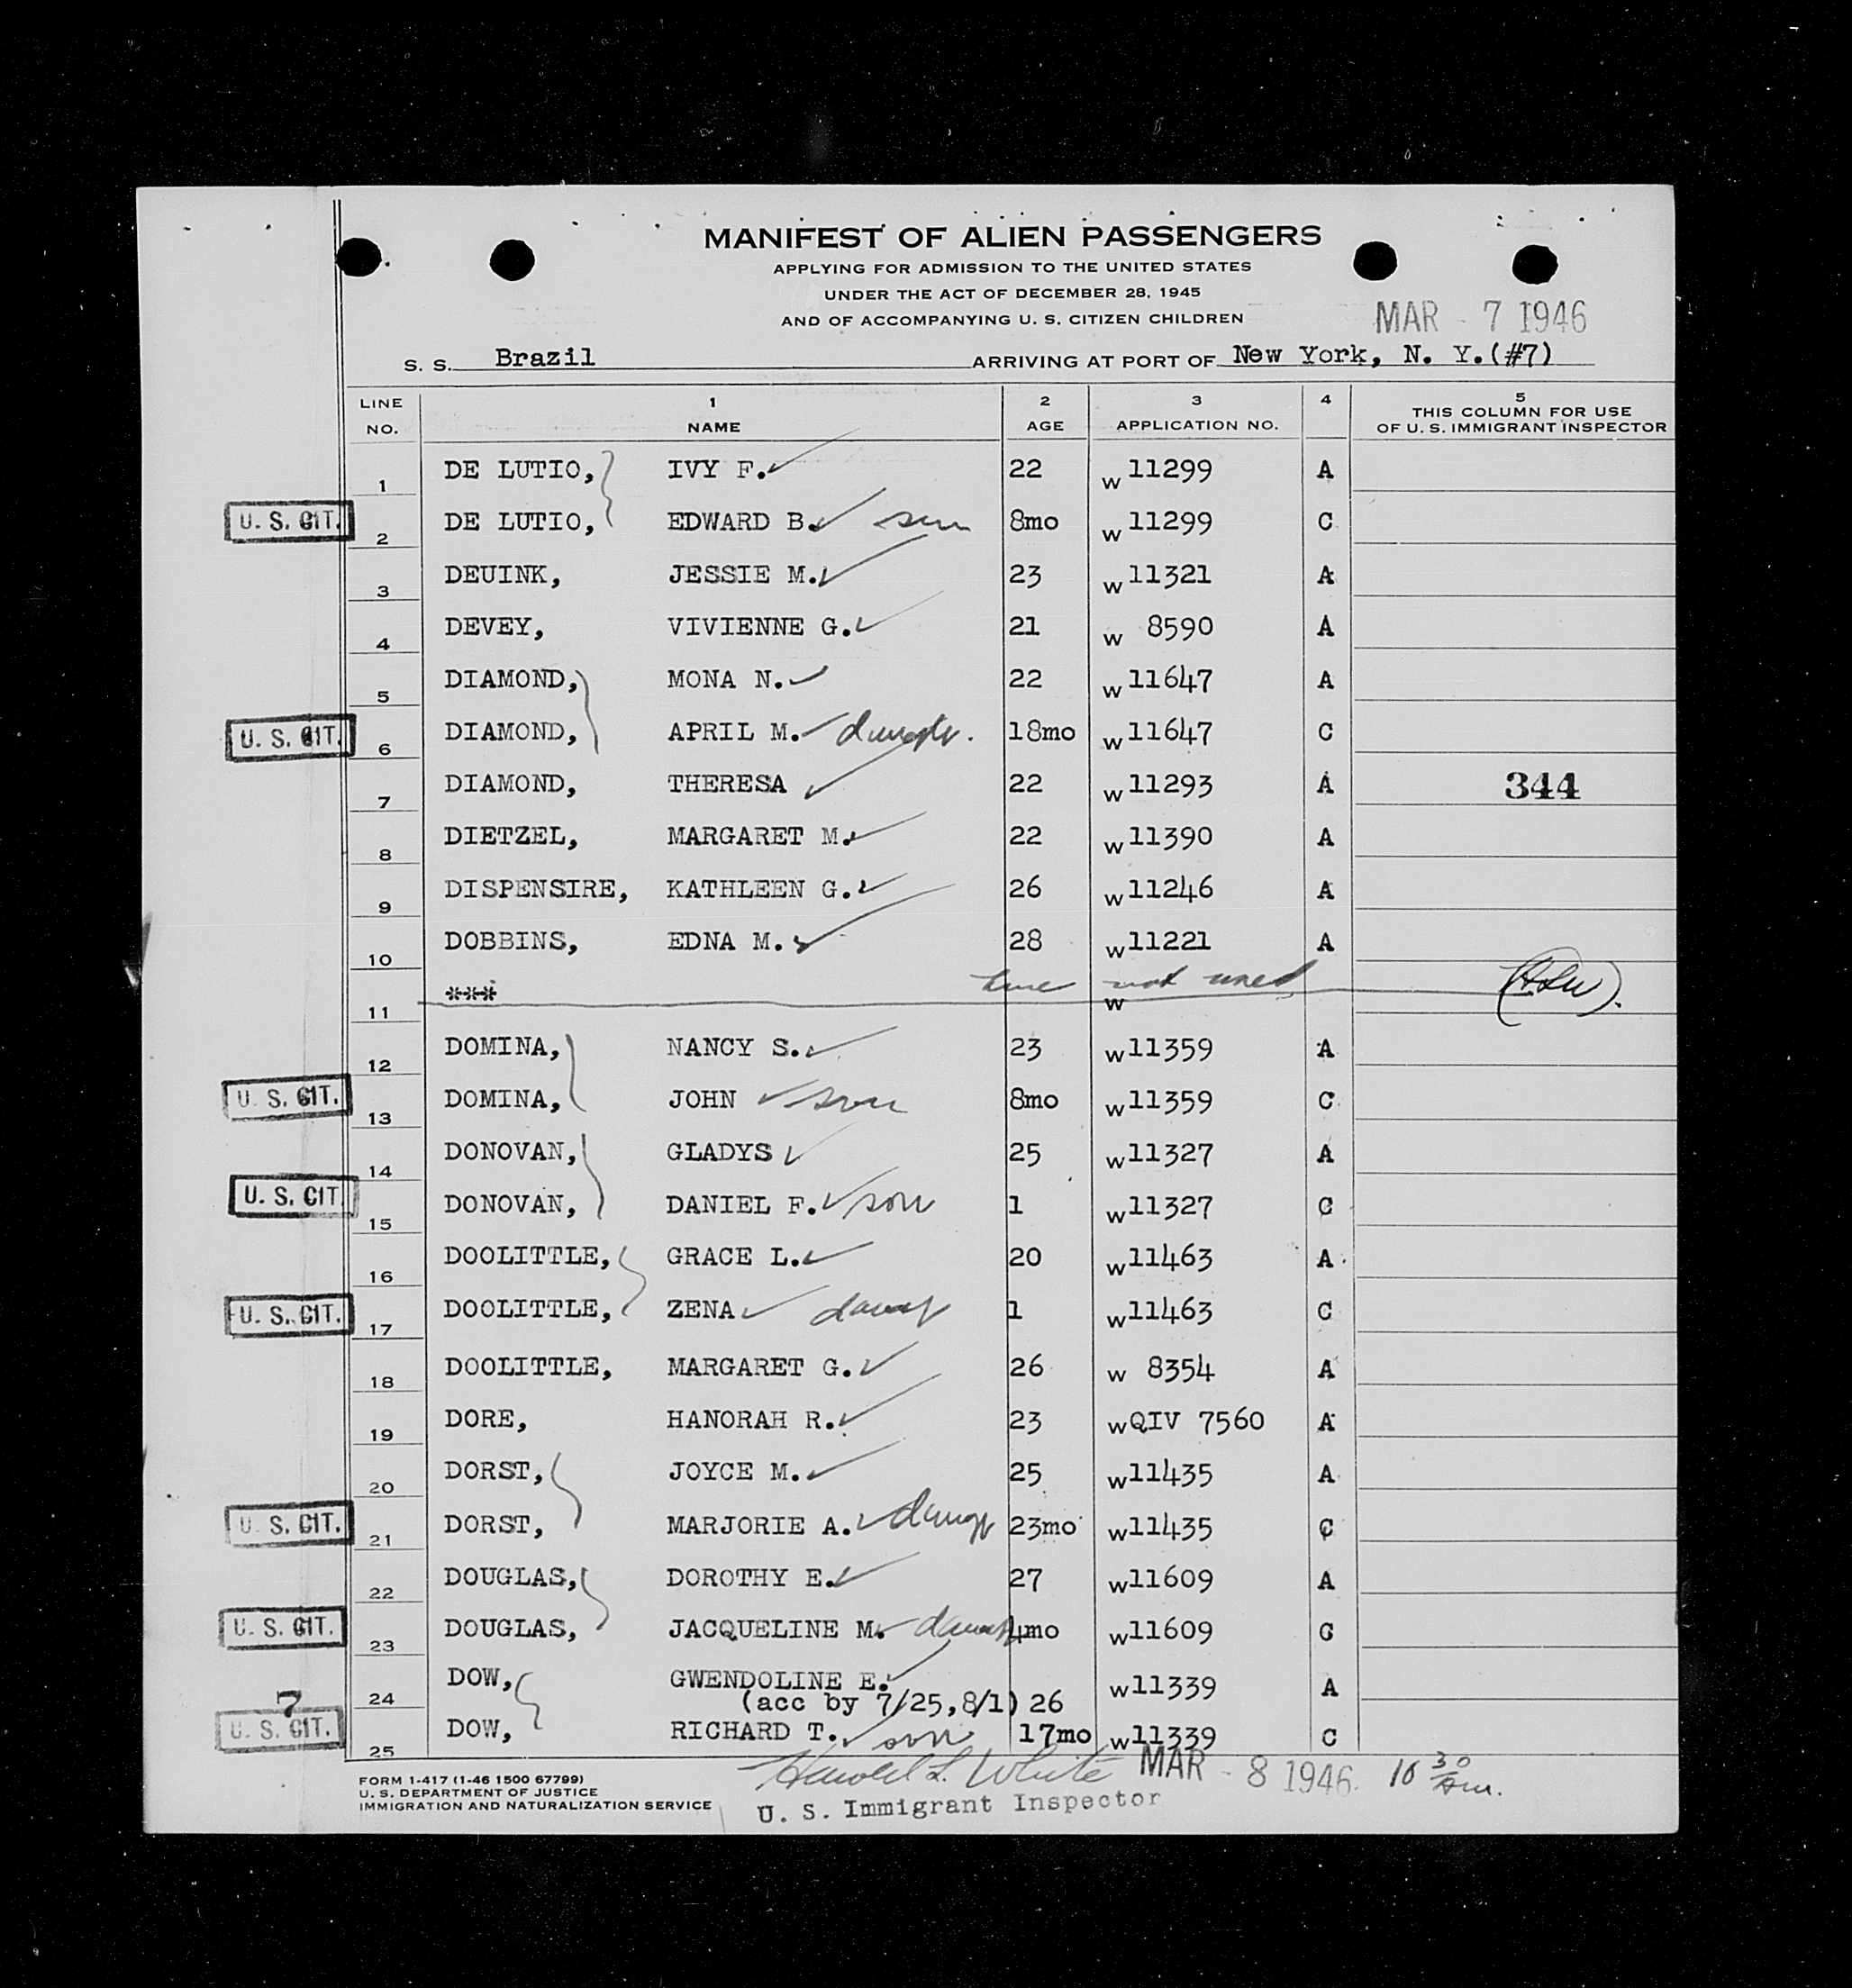 MANIFEST OF ALIEN PASSENGERS
APPLYING FOR ADMISSION TO THE UNITED STATES
UNDER THE ACT OF DECEMBER 28, 1945
AND OF ACCOMPANYING U. S. CITIZEN CHILDREN
MAR - 7 1946
S. S. Brazil ARRIVING AT PORT OF New York, N. Y.(#7)
LINE NO. 1 NAME 2 AGE 3 APPLICATION NO. 4 5 THIS COLUMN FOR USE OF U. S. IMMIGRANT INSPECTOR
1 DE LUTIO, IVY F. 22 w 11299 A
U. S. CIT. 2 DE LUTIO, EDWARD B. son 8mo w 11299 C
3 DEUINK, JESSIE M. 23 w 11321 A
4 DEVEY, VIVIENNE G. 21 w 8590 A
5 DIAMOND, MONA N. 22 w 11647 A
U. S. CIT. 6 DIAMOND, APRIL M. 18mo w 11647 C
7 DIAMOND, THERESA 22 w 11293 A 344
8 DIETZEL, MARGARET M. 22 w 11390 A
9 DISPENSIRE, KATHLEEN G. 26 w 11246 A
10 DOBBINS, EDNA M. 28 w 11221 A
11 *** line not used w
12 DOMINA, NANCY S. 23 w 11359 A
U. S. CIT. 13 DOMINA, JOHN son 8mo w 11359 C
14 DONOVAN, GLADYS 25 w 11327 A
U. S. CIT. 15 DONOVAN, DANIEL F. son 1 w 11327 C
16 DOOLITTLE, GRACE L. 20 w 11463 A
U. S. CIT. 17 DOOLITTLE, ZENA 1 w 11463 C
18 DOOLITTLE, MARGARET G. 26 w 8354 A
19 DORE, HANORAH R. 23 w QIV 7560 A
20 DORST, JOYCE M. 25 w 11435 A
U. S. CIT. 21 DORST, MARJORIE A. 23mo w 11435 C
22 DOUGLAS, DOROTHY E. 27 w 11609 A
U. S. CIT. 23 DOUGLAS, JACQUELINE M. 4mo w 11609 C
24 DOW, GWENDOLINE E. w 11339 A
7 (acc by 7/25,8/1) 26
U. S. CIT. 25 DOW, RICHARD T. son 17mo w 11339 C
Harold L. White MAR - 8 1946 10 30 Am.
U. S. Immigrant Inspector
FORM I-417 (1-46 1500 67799)
U. S. DEPARTMENT OF JUSTICE
IMMIGRATION AND NATURALIZATION SERVICE